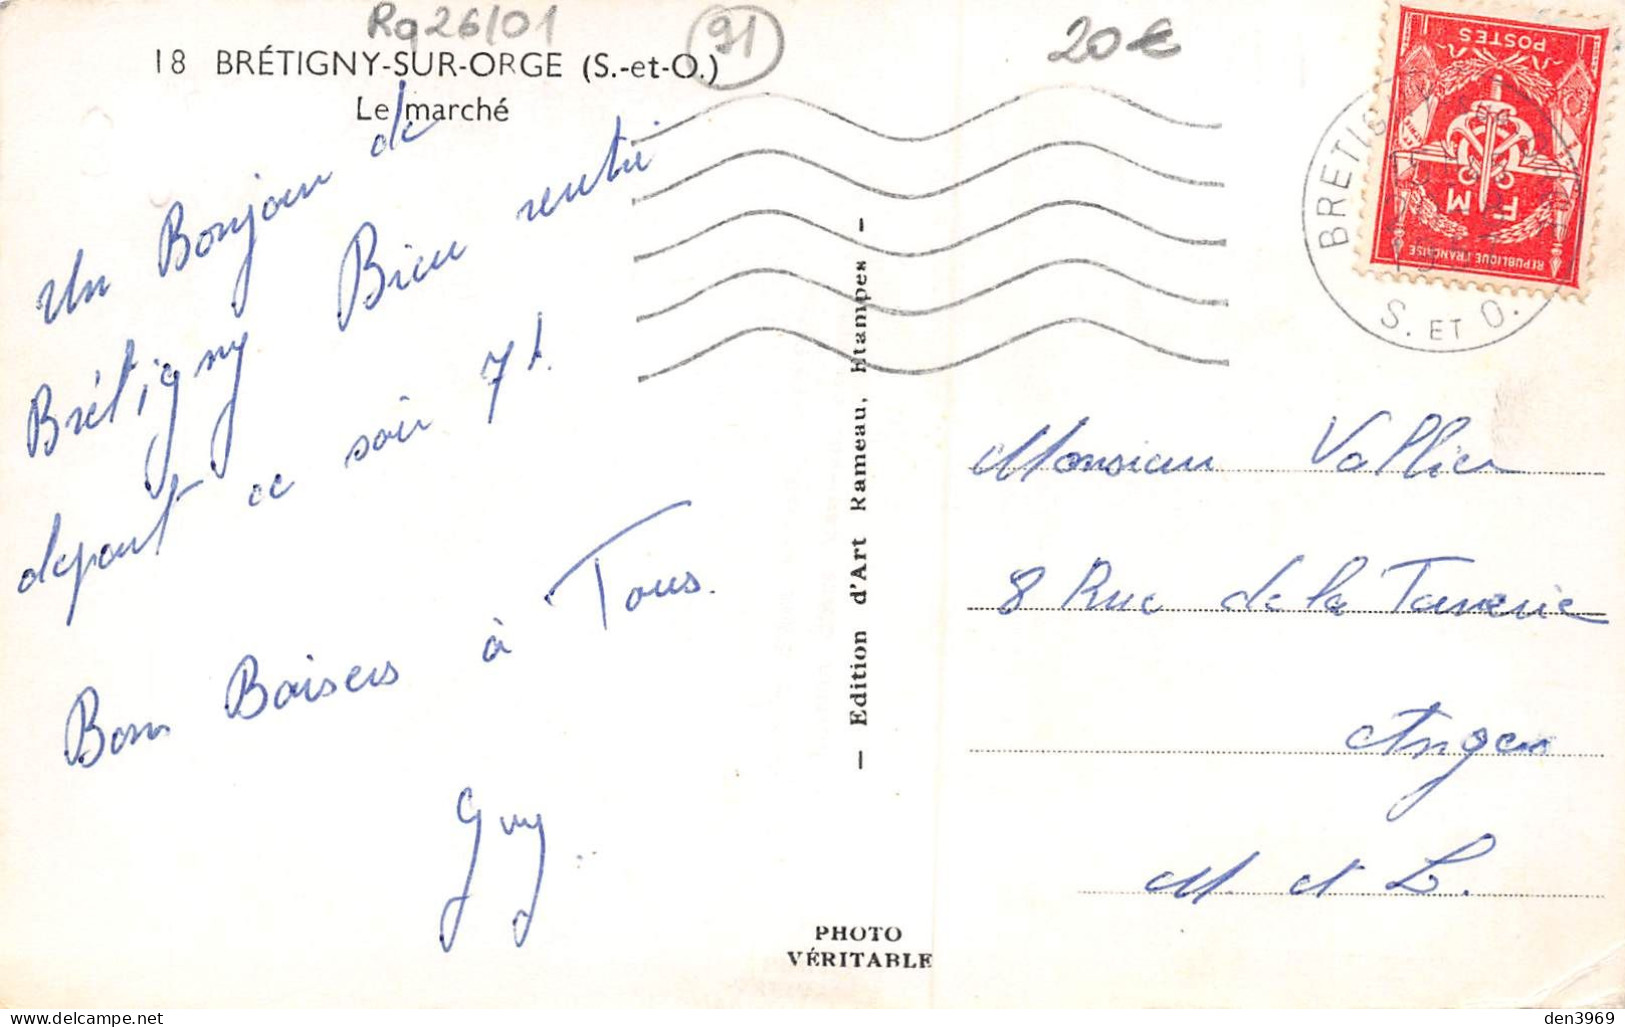 Rg26/01
91
20€
18 BRÉTIGNY-SUR-ORGE (S.-et-O.)
Le marché
Un Bonjour de
Brétigny Bien rentré
depart ce soir 7h.
Bons Baisers à Tous.
Guy
— Edition d'Art Rameau, Etampes —
PHOTO
VÉRITABLE
POSTES
F M
REPUBLIQUE FRANÇAISE
BRETIG
S. ET O.
Monsieur Vallier
8 Rue de la Tannerie
Angers
M. et L.
delcampe.net
den3969